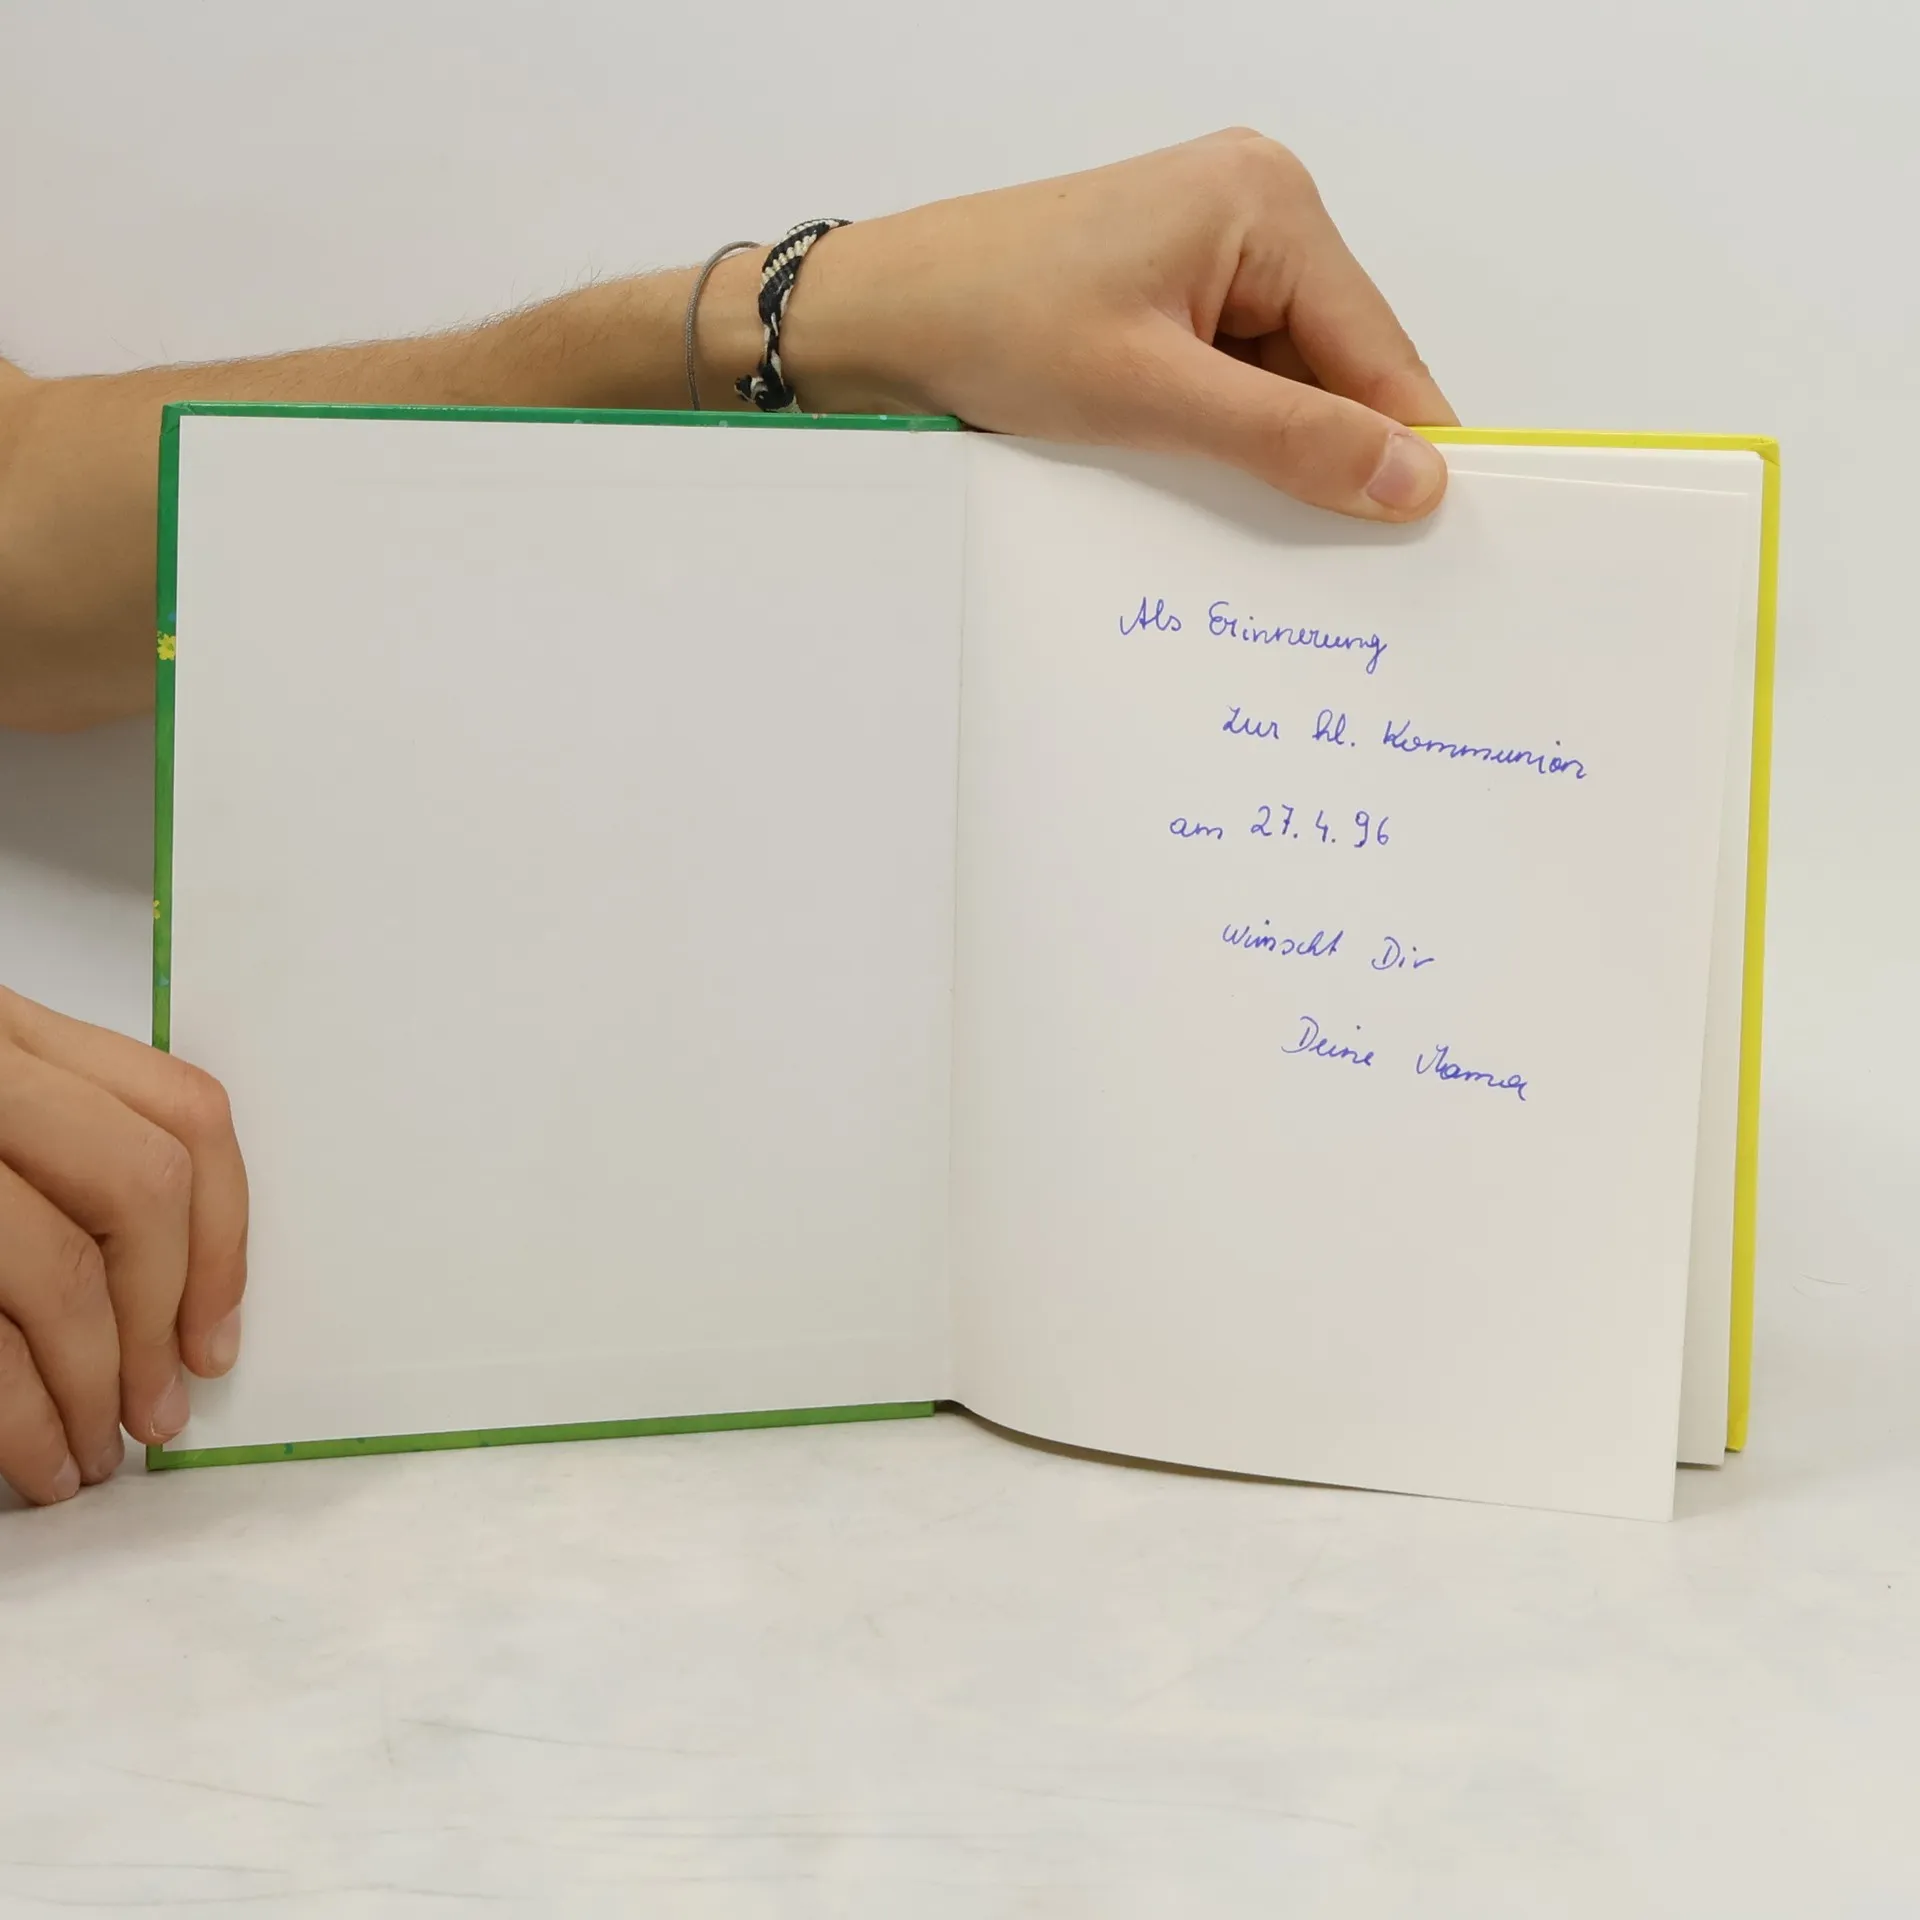 Als Erinnerung
zur hl. Kommunion
am 27.4.96
wünscht Dir
Deine Mama